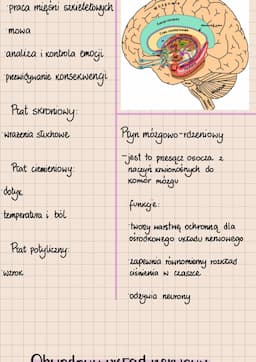 praca mięśni szkieletowych
mowa
analiza i kontrola emocji
przewidywanie konsekwencji
Płat skroniowy:
wrażenia słuchowe
Płat ciemieniowy:
dotyk
temperatura i ból
Płat potyliczny:
wzrok
Płyn mózgowo-rdzeniowy
-jest to przesącz osocza z
naczyń krwionośnych do
komór mózgu
funkcje:
-tworzy warstwę ochronną dla
ośrodkowego układu nerwowego
-zapewnia równomierny rozkład
ciśnienia w czaszce
-odżywia neurony
Obwodowy układ nerwowy